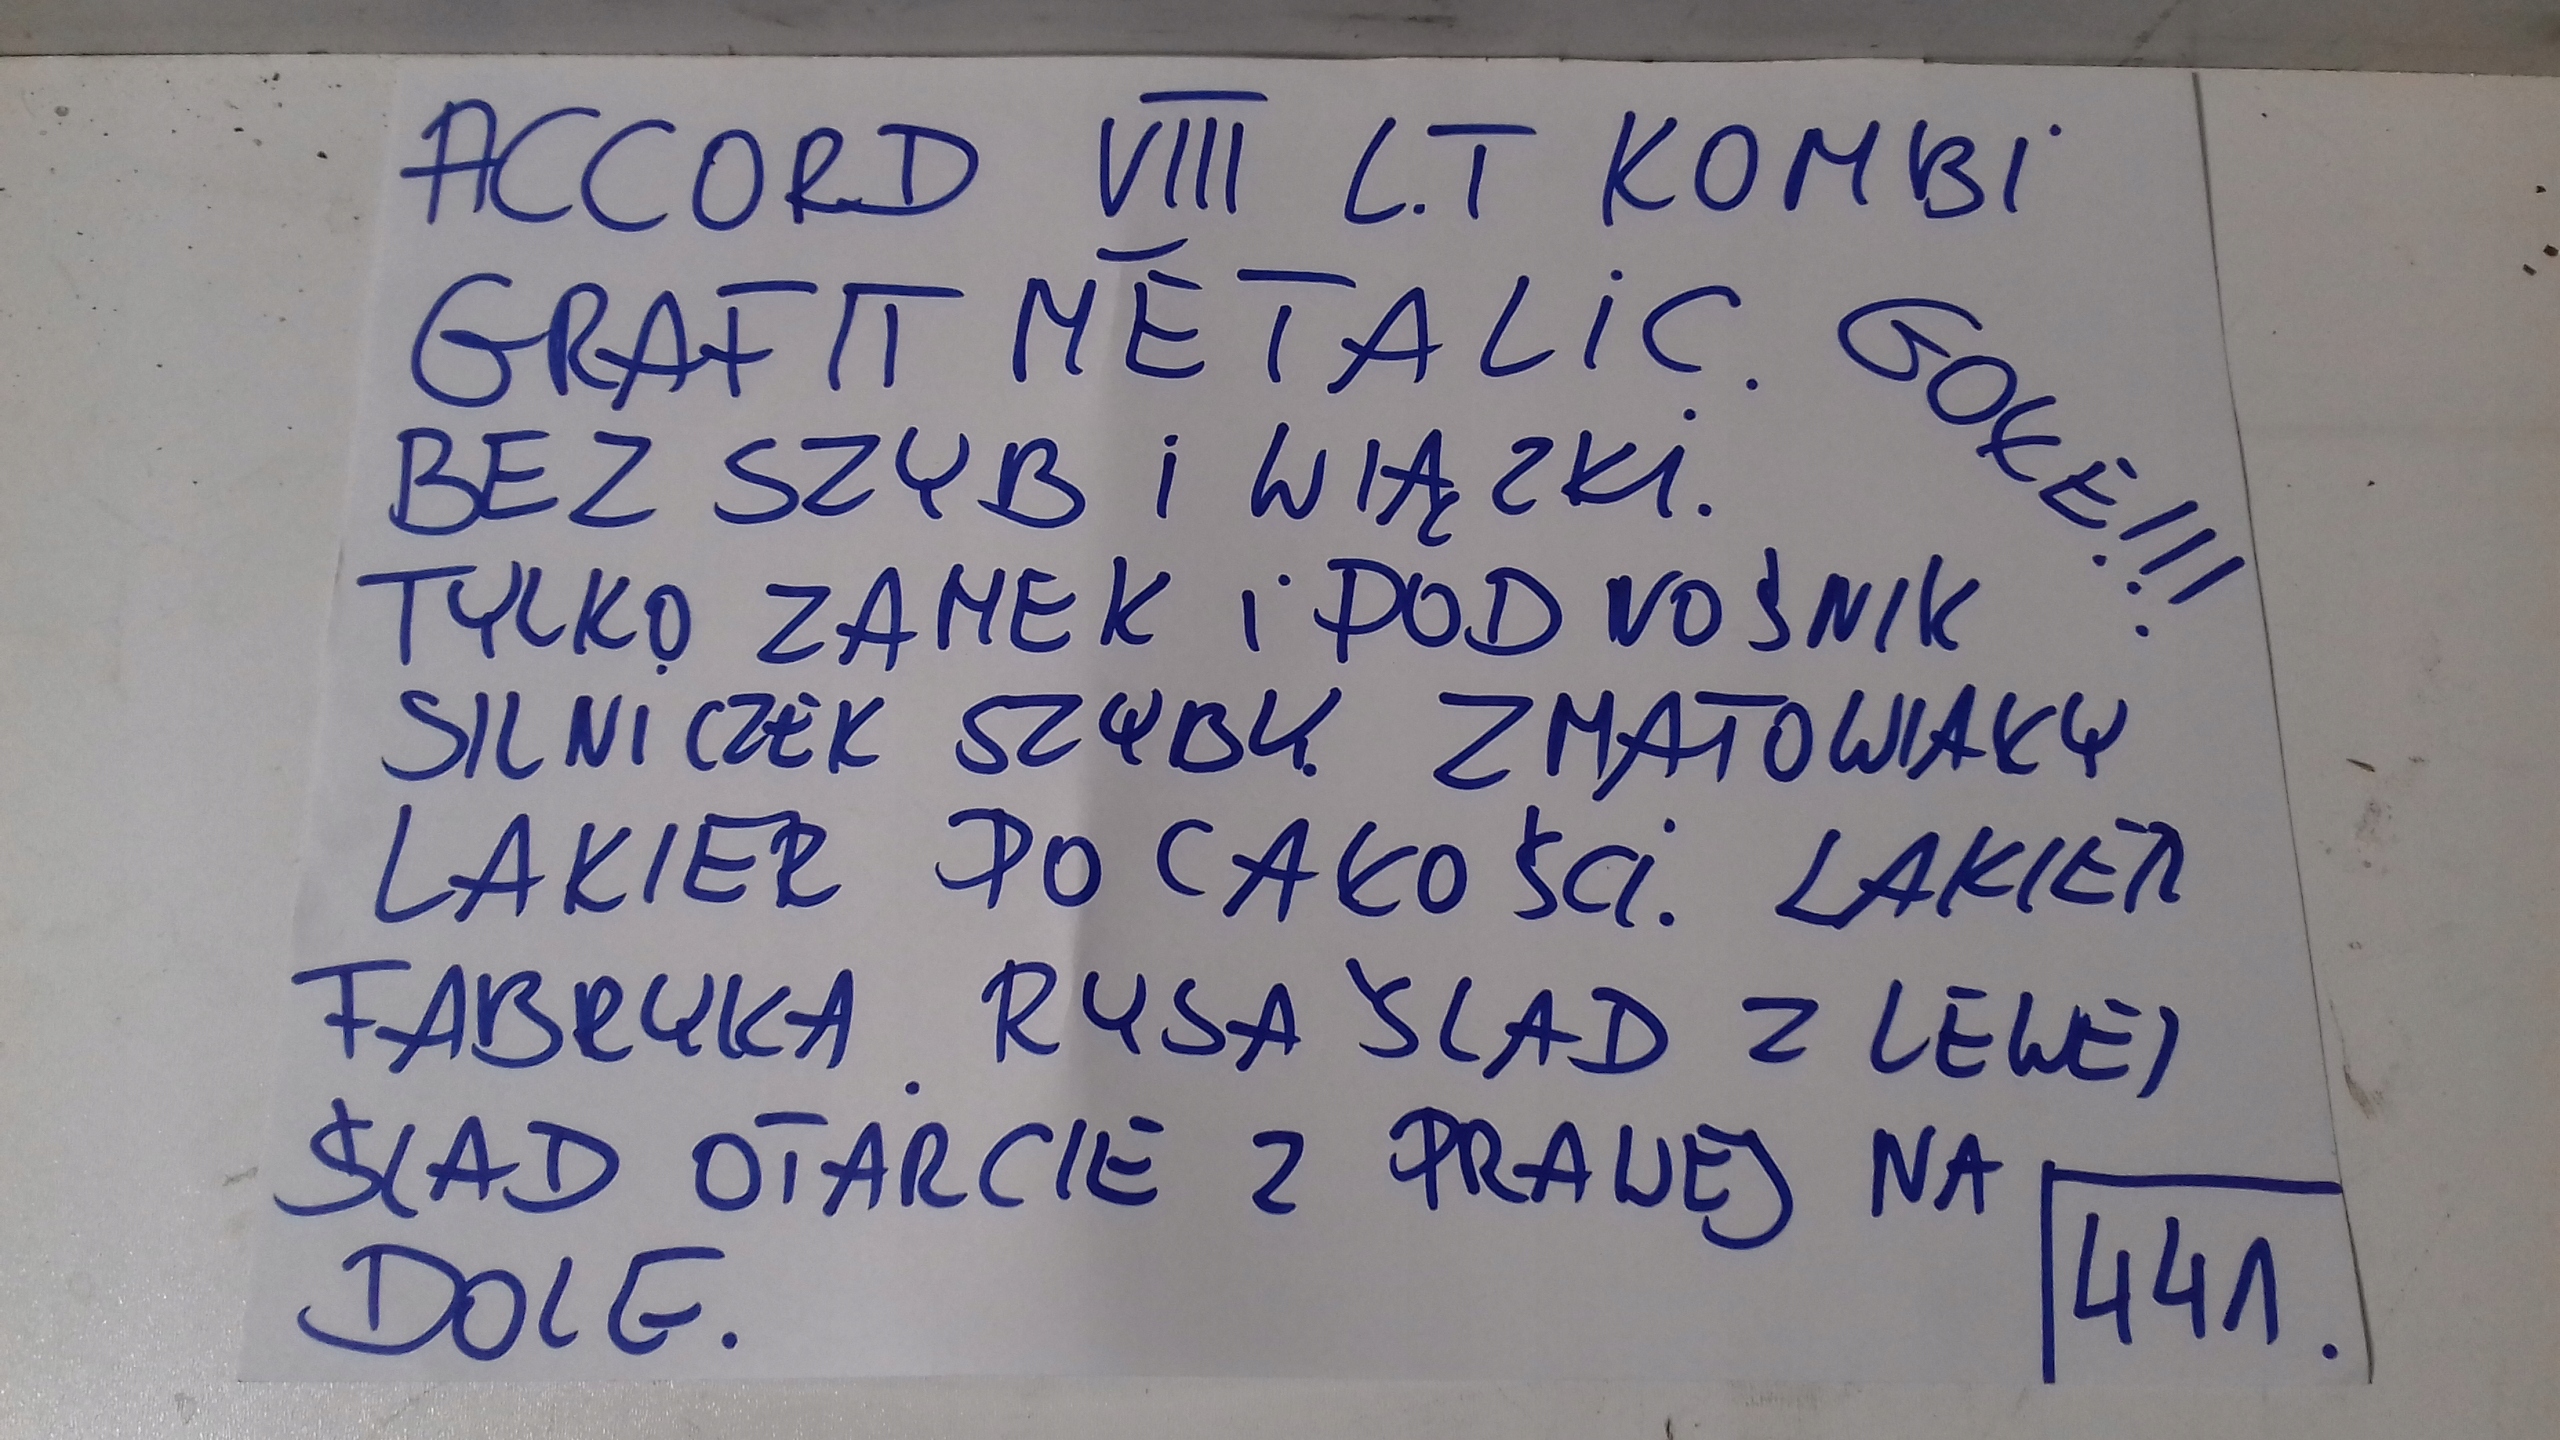 ACCORD VIII L.T KOMBI
GRAFIT METALIC. GOŁE!!!
BEZ SZYB I WIĄZKI.
TYLKO ZAMEK I PODNOŚNIK
SILNICZEK SZYBY. ZMATOWIAŁY
LAKIER PO CAŁOŚCI. LAKIER
FABRYKA. RYSA ŚLAD Z LEWEJ
ŚLAD OTARCIE Z PRAWEJ NA
DOLE.
441.